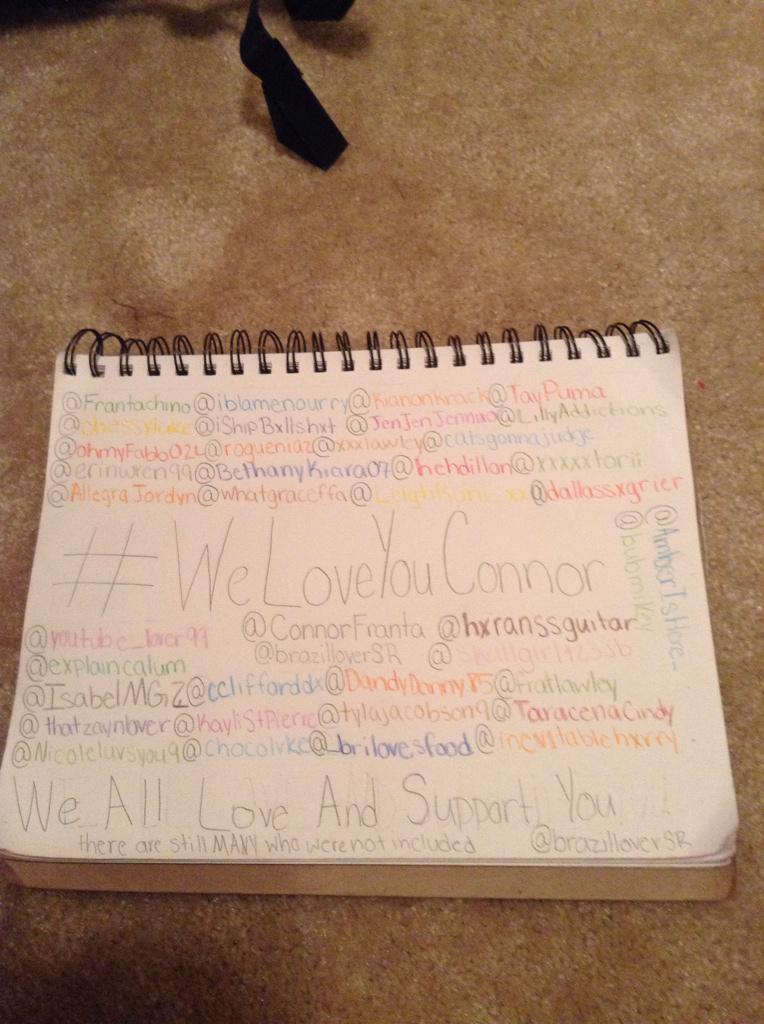 @Frantachino @iblamenourry @KianonKrack @TayPuma
@chessyluke @iShipBxllshxt @JenJenJennxo @LillyAddictions
@ohmyFabbO2L @rogueniaz @xxxlawley @catsgonnajudge
@erinwren99 @BethanyKiara07 @hehdillon @xxxxxtorii
@AllegraJordyn @whatgraceffa @dallassxgrier
@AmberIsHere-
@bubmikey
#WeLoveYouConnor
@youtube_lover99 @ConnorFranta @hxranssguitar
@explaincalum @brazilloverSR
@IsabelMGiZ @ccliffarddx @DandyDanny85 @fratlawley
@thatzaynlover @KayliStPierre @tylajacobson9 @TaracenaCindy
@Nicoleluvsyou9 @chocolvke @_brilovesfood @inevitablehxrry
We All Love And Support You
there are still MANY who were not included @brazilloverSR